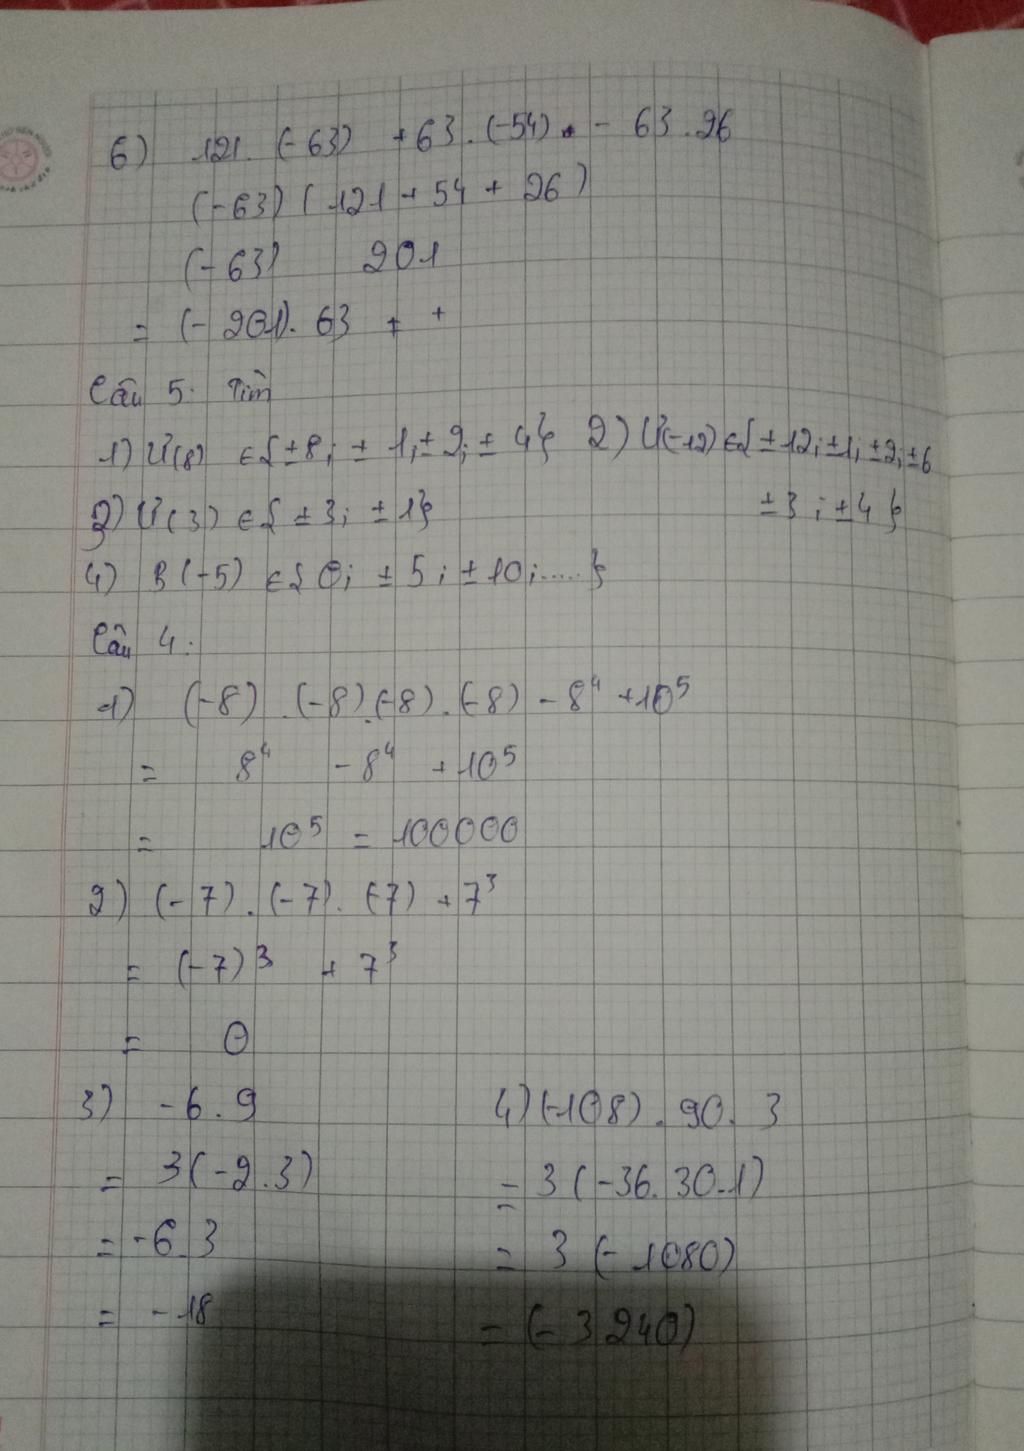 6) 121. (-63) + 63. (-54) - 63.26
(-63) (121 + 54 + 26)
(-63) 201
= (-201). 63 + +
Câu 5: Tìm
1) Ư(8) ∈ { ±8; ±1; ±2; ±4} 2) Ư(-12) ∈ { ±12; ±1; ±2; ±6
3) Ư(3) ∈ { ±3; ±1} ±3; ±4}
4) B(-5) ∈ { 0; ±5; ±10;.....}
Câu 4:
1) (-8) .(-8).(-8).(-8) - 8⁴ + 10⁵
= 8⁴ - 8⁴ + 10⁵
= 10⁵ = 100000
2) (-7).(-7).(-7) + 7³
= (-7)³ + 7³
= 0
3) -6.9 4) (-108). 90. 3
= 3(-2.3) = 3(-36.30.1)
= -6.3 = 3(-1080)
= -18 = (-3240)